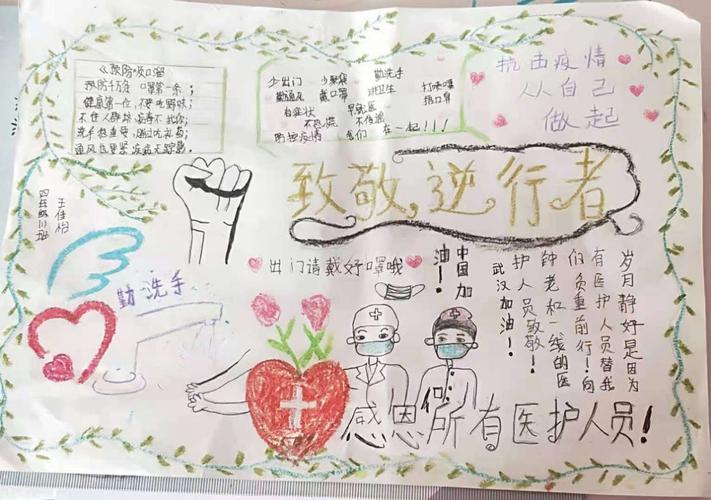 《预防顺口溜
预防千万条 口罩第一条;
健康第一位,不要吃野味;
不往人群挤 病毒不扰你;
洗手很重要
通风也要紧 疾病无踪影。
少出门 少聚集 勤洗手
勤通风 戴口罩 讲卫生 打喷嚏
有症状 早就医 捂口鼻
不恐慌 不传谣
防控疫情 我们 在一起!!!
抗击疫情
从自己
做起
致敬,逆行者
四年级(1)班
王佳怡
出门请戴好口罩哦
中国加油!
岁月静好是因为
有医护人员替我
们负重前行!向
钟老和一线的医
护人员致敬!
武汉加油!
勤洗手
感恩所有医护人员!